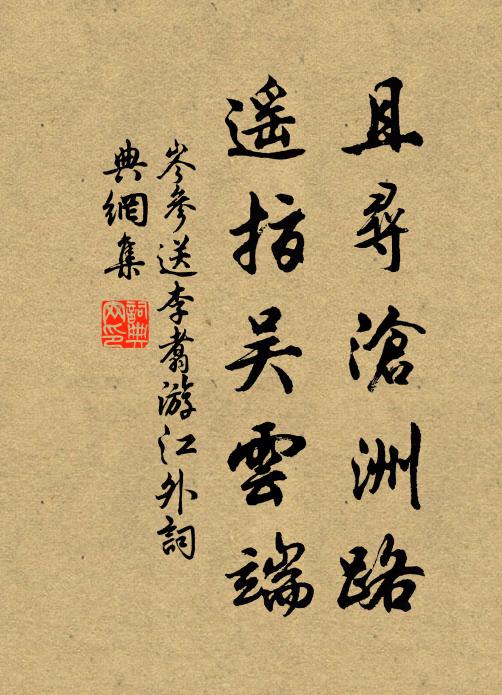 且尋滄洲路
遥指吴雲端
岑參送李翥游江外詞
典網集
詞典
网印